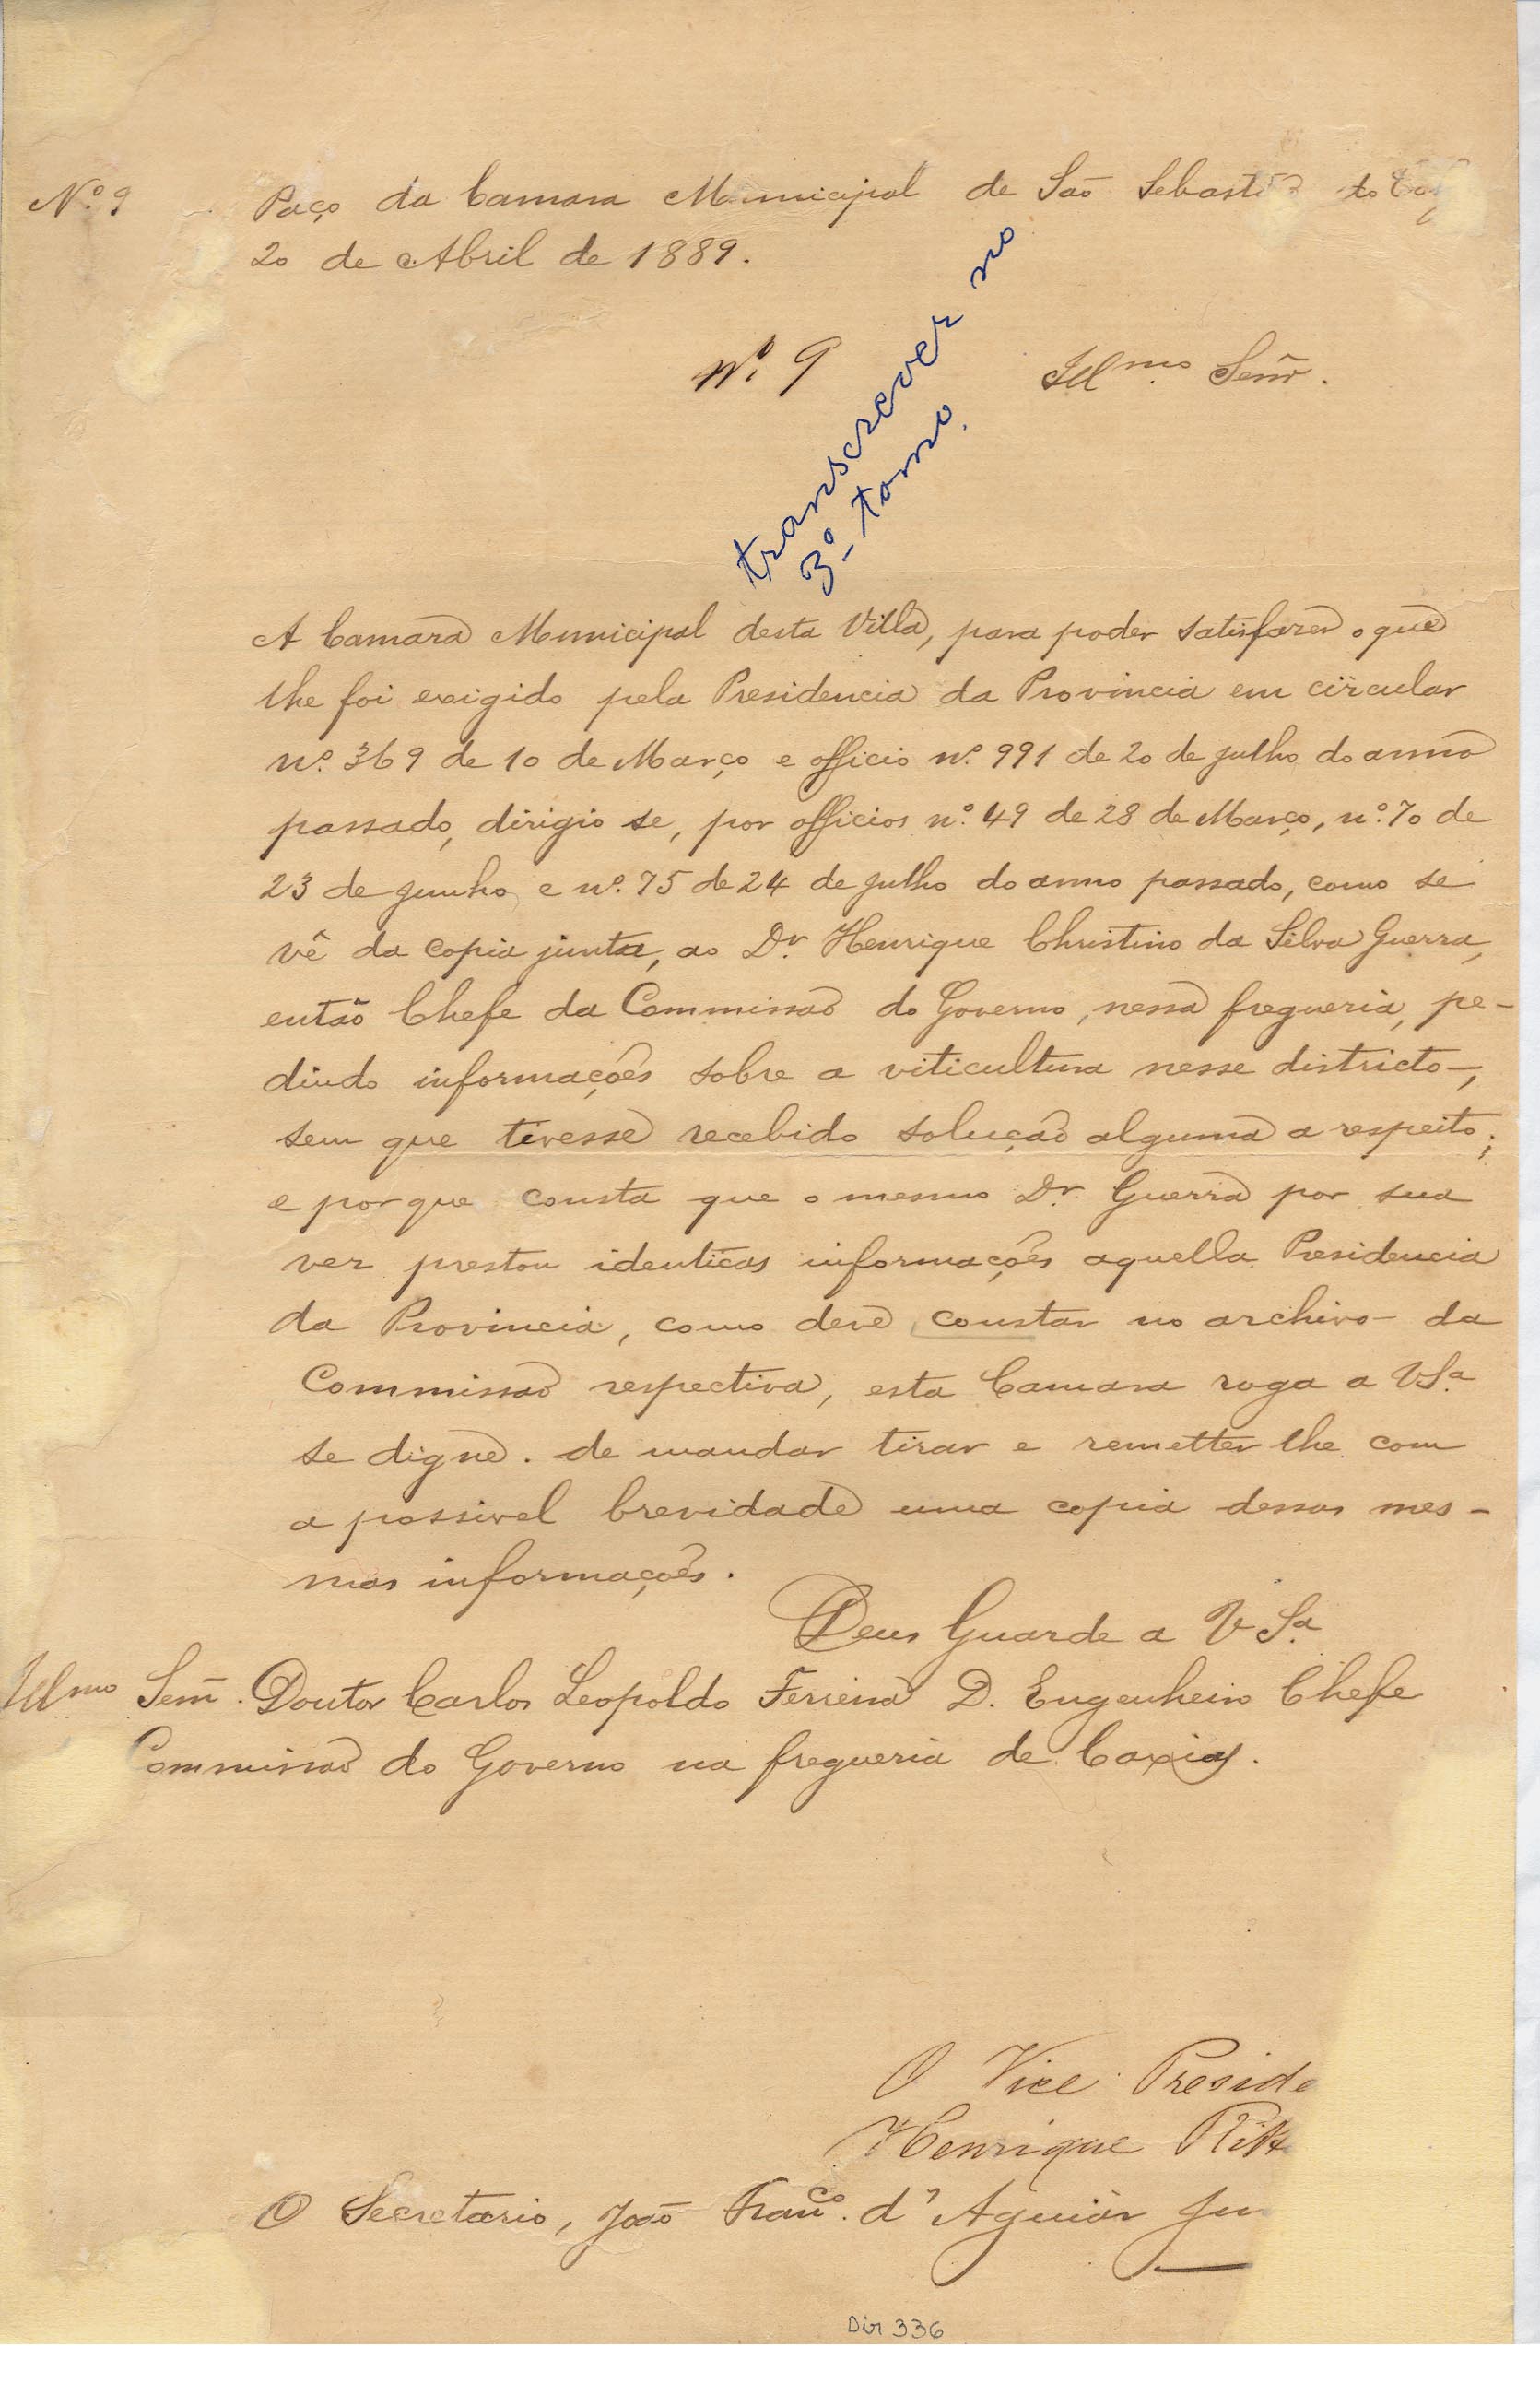 Nº 9 Paço da Camara Municipal de São Sebastião do
20 de Abril de 1889.
nº 9 Illmo. Senr.
transcrever no
3º tomo.
A Camara Municipal desta Villa, para poder satisfazer o que
lhe foi exigido pela Presidencia da Provincia em circular
nº. 369 de 10 de Março e officio nº. 991 de 20 de julho do anno
passado, dirigio se, por officios nº. 49 de 28 de Março, nº. 70 de
23 de junho e nº. 75 de 24 de julho do anno passado, como se
vê da copia junta, ao Dr. Henrique Christino da Silva Guerra,
então Chefe da Commissão do Governo, nessa freguezia, pe-
dindo informações sobre a viticultura nesse districto-,
sem que tivesse recebido solução alguma a respeito;
e porque consta que o mesmo Dr. Guerra por sua
vez prestou identicas informações aquella Presidencia
da Provincia, como deve constar no archivo da
Commissão respectiva, esta Camara roga a VSa.
se digne. de mandar tirar e remetter lhe com
a possivel brevidade uma copia dessas mes-
mas informações.
Deus Guarde a V Sa.
Illmo Senr. Doutor Carlos Leopoldo Ferreira D. Engenheiro Chefe
Commissão do Governo na freguezia de Caxias.
O Vice Preside
Henrique Ritt
O Secretario, João Franco. d'Aguiar Ju
Dir 336